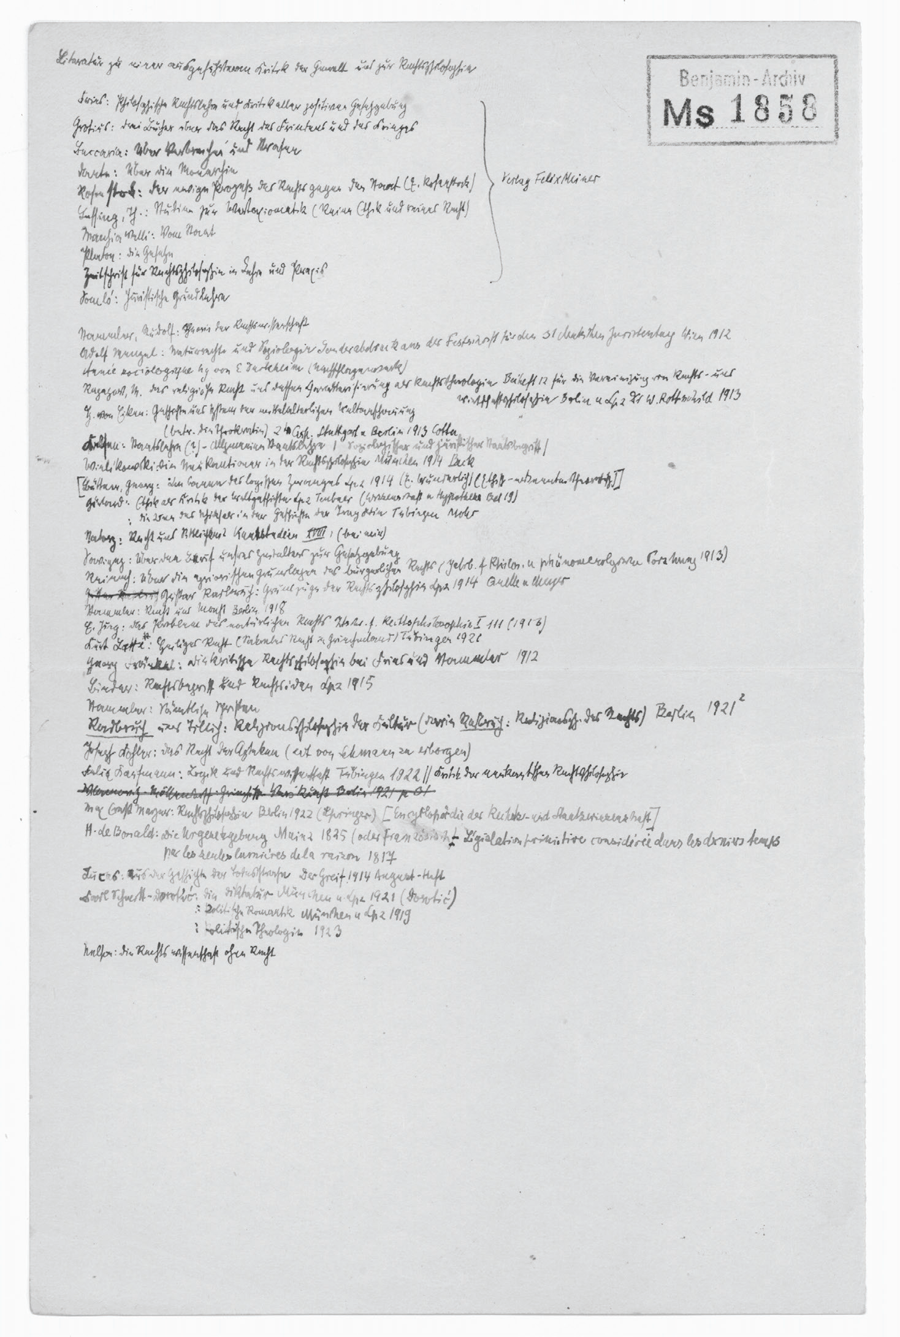 Literatur zu einer ausgeführteren Kritik der Gewalt und zur Rechtsphilosophie
Benjamin-Archiv
Ms 1858
Fries: Philosophische Rechtslehre und Kritik aller positiven Gesetzgebung
Grotius: drei Bücher über das Recht des Friedens und des Krieges
Beccaria: Über Verbrechen und Strafen
Dante: Über die Monarchie
Rosenstock: der ewige Prozeß des Rechts gegen den Staat (E. Rosenstock)
Verlag Felix Meiner
Lessing, Th.: Studien zur Wertaxiomatik (Reine Ethik und reines Recht)
Macchiavelli: Vom Staat
Platon: die Gesetze
Zeitschrift für Rechtsphilosophie in Lehre und Praxis
Somló: Juristische Grundlehre
Stammler, Rudolf: Theorie der Rechtswissenschaft
Adolf Menzel: Naturrecht und Soziologie Sonderabdruck aus der Festschrift für den 31 deutschen Juristentag Wien 1912
Année sociologique hg von E Durkheim (Nachschlagewerk)
M. das religiöse Recht und dessen Charakterisierung als Rechtstheologie Beiheft 12 für die Vereinigung von Rechts- und
Wirtschaftsphilosophie Berlin u Lpz Dr W. Rothschild 1913
H. von Eicken: Geschichte und System der mittelalterlichen Weltanschauung
(betr. den Theokratien) 2te Aufl. Stuttgart u Berlin 1913 Cotta
Kelsen: Staatslehre (?) – Allgemeine Staatslehre / Soziologischer und juristischer Staatsbegriff /
Wielikowski: die Neukantianer in der Rechtsphilosophie München 1914 Beck
Georg: im Banne des logischen Zwanges Lpz 1914 (E. Wunderlich)
Ethik als Kritik der Weltgeschichte Lpz Teubner (Wissenschaft u Hypothese Bd 19)
: die Idee des Schicksals in der Geschichte der Tragödie Tübingen Mohr
Natorp: Recht und Sittlichkeit Kantstudien XVIII, 1 (bei mir)
Savigny: Über den Beruf unsres Zeitalters zur Gesetzgebung
Reinach: Über die apriorischen Grundlagen des bürgerlichen Rechts (Jahrb. f. Philos. u phänomenologische Forschung 1913)
Gustav Radbruch: Grundzüge der Rechtsphilosophie Lpz 1914 Quelle u Meyer
Stammler: Recht und Macht Berlin 1918
E. Jung: das Problem des natürlichen Rechts Ztschr. f. Rechtsphilosophie I 111 (1913)
Kurt Latte: Heiliges Recht (Sakrales Recht in Griechenland) Tübingen 1920
Georg Fränkel: die kritische Rechtsphilosophie bei Fries und Stammler 1912
Binder: Rechtsbegriff und Rechtsidee Lpz 1915
Stammler: Sämtliche Schriften
Radbruch und Tillich: Religionsphilosophie der Kultur (darin Radbruch: Religionsph. des Rechts) Berlin 1921²
Josef Kohler: das Recht der Azteken (evt von Lehmann zu erborgen)
Felix Kaufmann: Logik und Rechtswissenschaft Tübingen 1922 // Kritik der neukantischen Rechtsphilosophie
Max Ernst Mayer: Rechtsphilosophie Berlin 1922 (Springer) [Encyklopädie der Rechts- und Staatswissenschaft]
H. de Bonald: die Urgesetzgebung Mainz 1825 (oder Französisch) – Législation primitive considérée dans les derniers temps
par les seules lumières de la raison 1817
Lucas: Aus der Geschichte der Todesstrafe Der Greif 1914 August-Heft
Carl Schmitt-Dorotić: die Diktatur München u Lpz 1921 (Dorotić)
: Politische Romantik München u Lpz 1919
: Politische Theologie 1923
Nelson: die Rechtswissenschaft ohne Recht